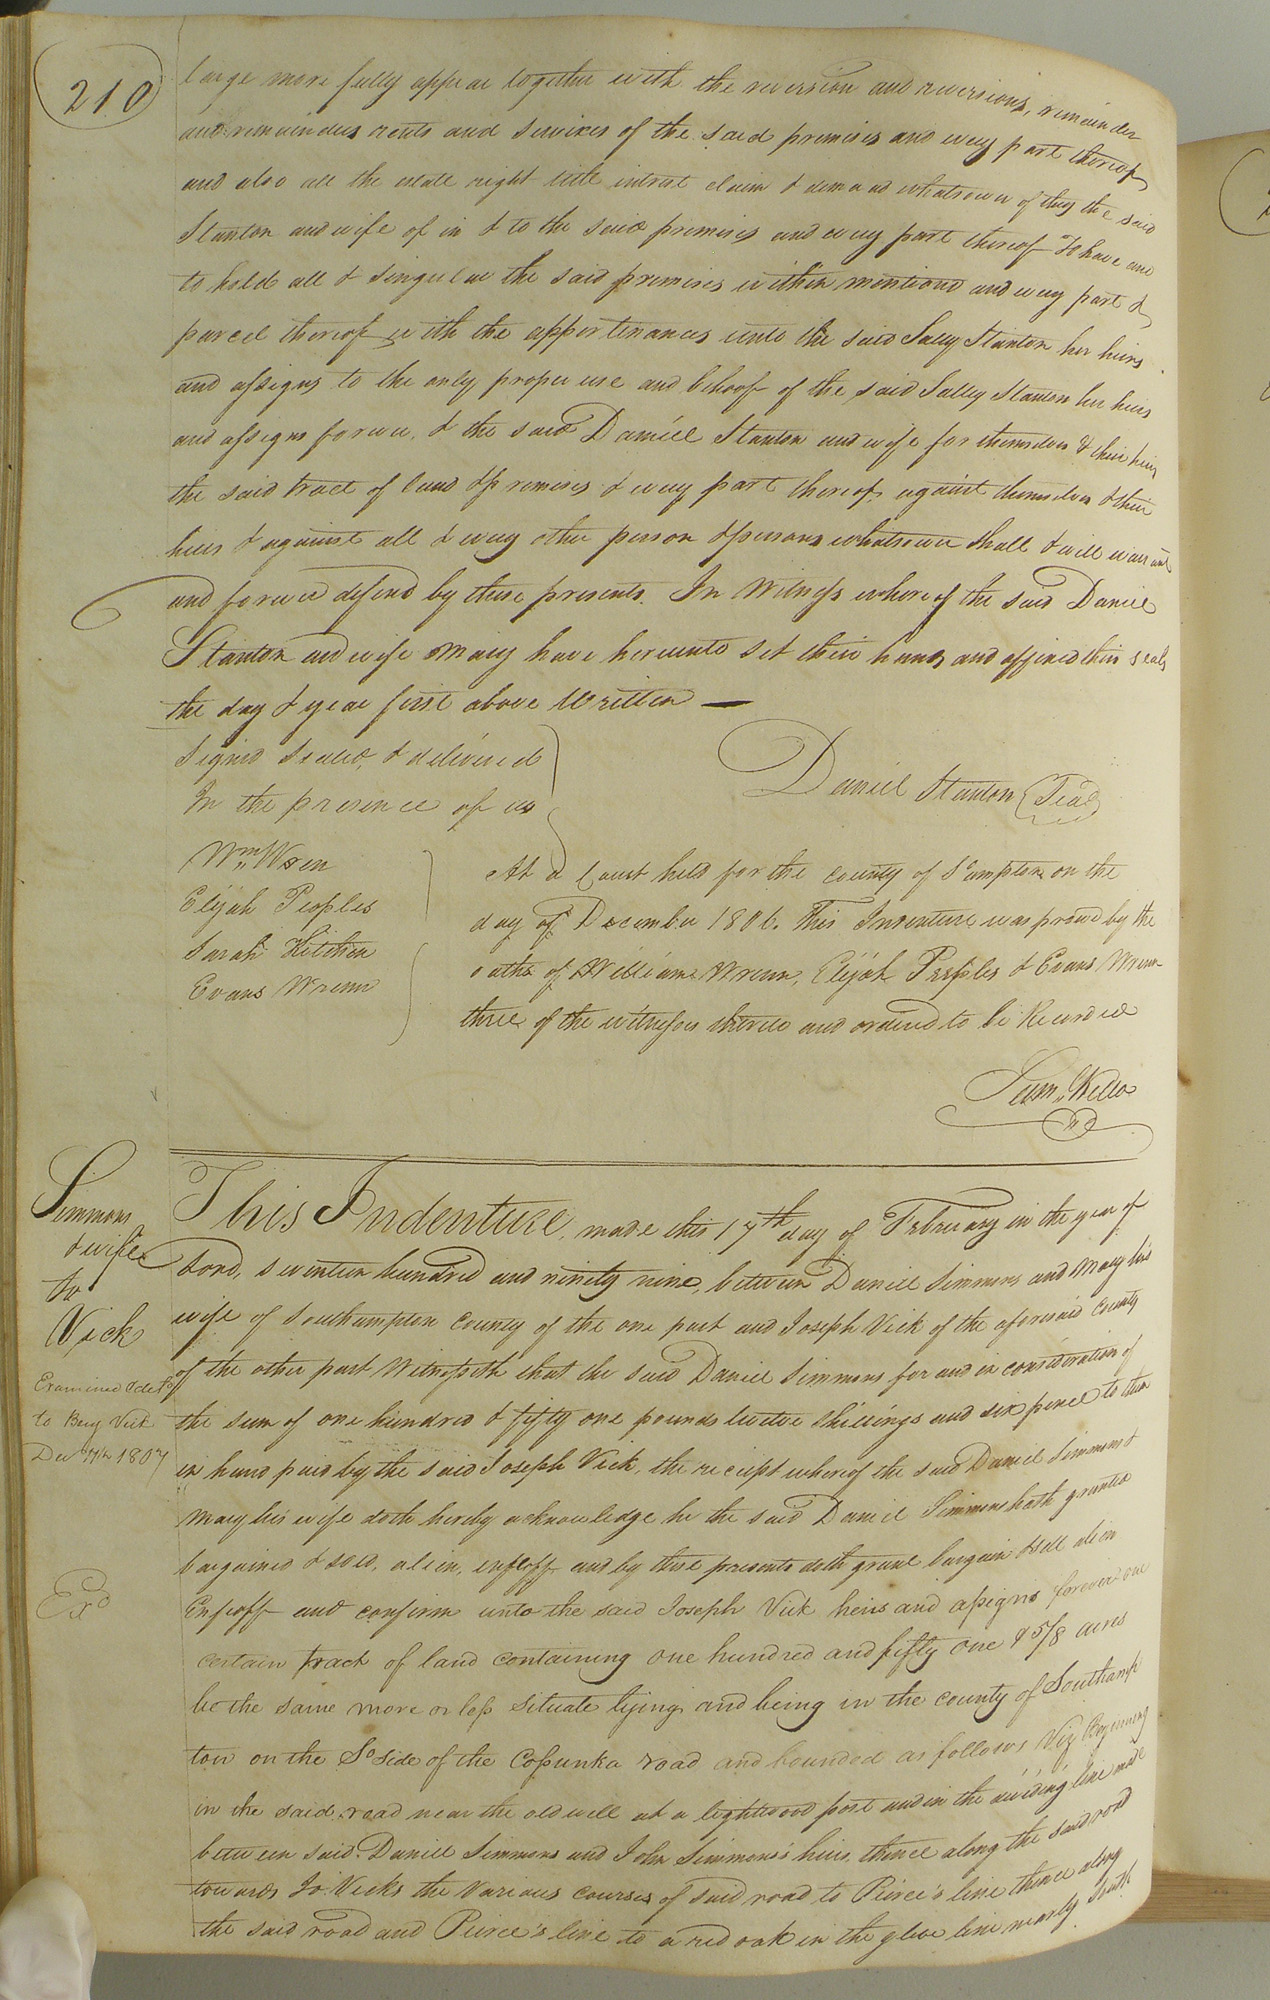 210
large more fully appear together with the reversion and reversions, remainder
and remainders rents and services of the said premises and every part thereof
and also all the estate right title interest claim & demand whatsoever of they the said
Stanton and wife of in & to the said premises and every part thereof To have and
to hold all & singular the said premises within mentiond and every part &
parcel thereof with the appertinances unto the said Sally Stanton her heirs
and assigns to the only proper use and behoof of the said Salley Stanton her heirs
and assigns forever, & the said Daniel Stanton and wife for themselves & their heirs
the said tract of land & premises & every part thereof against themselves & their
heirs & against all & every other person & persons whatsoever shall & will warrant
and forever defend by these presents. In Witness whereof the said Daniel
Stanton and wife Mary have hereunto set their hands and affixed their seals
the day & year first above Written —
Signd Sealed, & delivered
In the presence of us
Daniel Stanton (Seal)
Wm Wren
Elijah Peoples
Sarah Kitchen
Evans Wrenn
At a Court held for the county of So.ampton on the
day of December 1806. This Indenture was proved by the
oaths of William Wrenn, Elijah Peoples & Evans Wrenn
three of the witnesses thereto and ordered to be Recorded
Sam. Kello
Simmons
& wife
to
Vick
Examined & deld
to Benj Vick
Dec 7th 1807
Exd
This Indenture, made this 17th day of February in the year of
Lord, seventeen hundred and ninety nine, between Daniel Simmons and Mary his
wife of Southampton County of the one part and Joseph Vick of the aforesaid County
of the other part Witnesseth that the said Daniel Simmons for and in consideration of
the sum of one hundred & fifty one pounds twelve shillings and six pence to them
in hand paid by the said Joseph Vick, the receipt whereof the said Daniel Simmons &
Mary his wife doth hereby acknowledge he the said Daniel Simmons hath granted
bargained & sold, alien, enfeoff and by these presents doth grant bargain & sell alien
Enfeoff and confirm unto the said Joseph Vick heirs and assigns forever one
certain tract of land containing one hundred and fifty one & 5/8 acres
be the same more or less situate lying and being in the county of Southamp
ton on the So side of the Cossunka road and bounded as follows Viz Beginning
in the said road near the old well at a lightwood post and in the dividing line made
between said Daniel Simmons and John Simmons's heirs, thence along the said road
towards Jo. Vicks the various courses of said road to Peirce's line thence along
the said road and Peirce's line to a red oak in the glebe line nearly South